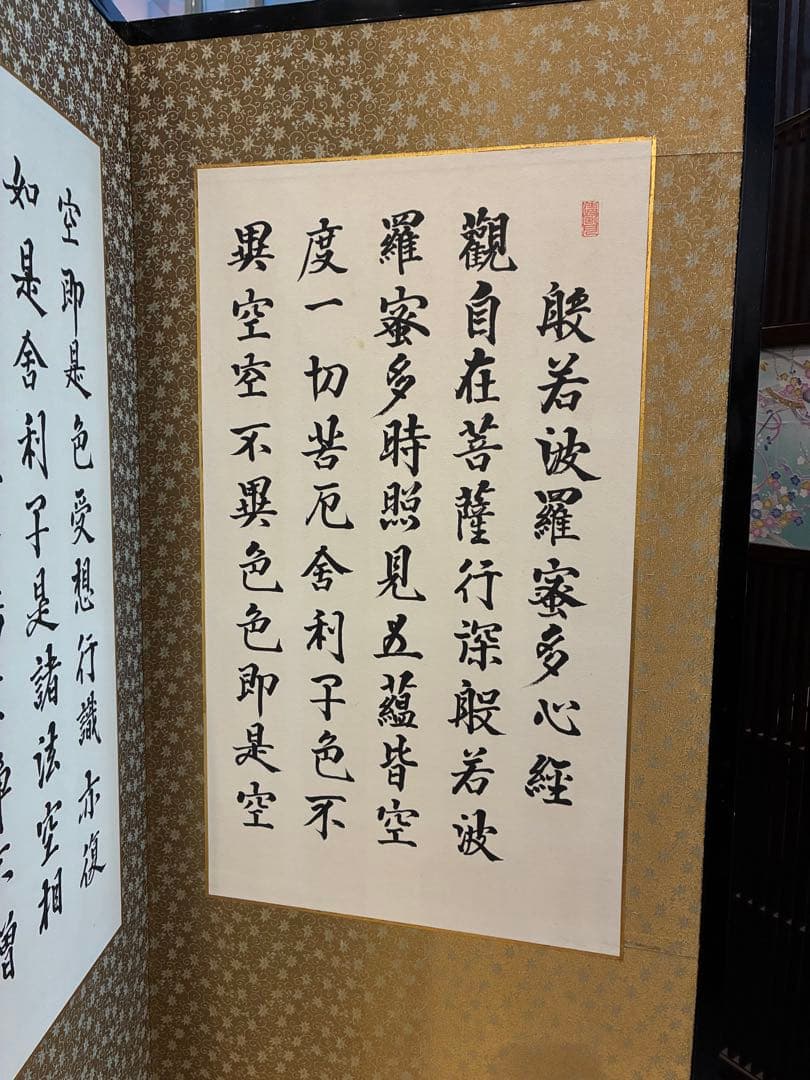 般若波羅蜜多心經
觀自在菩薩行深般若波
羅蜜多時照見五蘊皆空
度一切苦厄舍利子色不
異空空不異色色即是空
空即是色受想行識亦復
如是舍利子是諸法空相
增